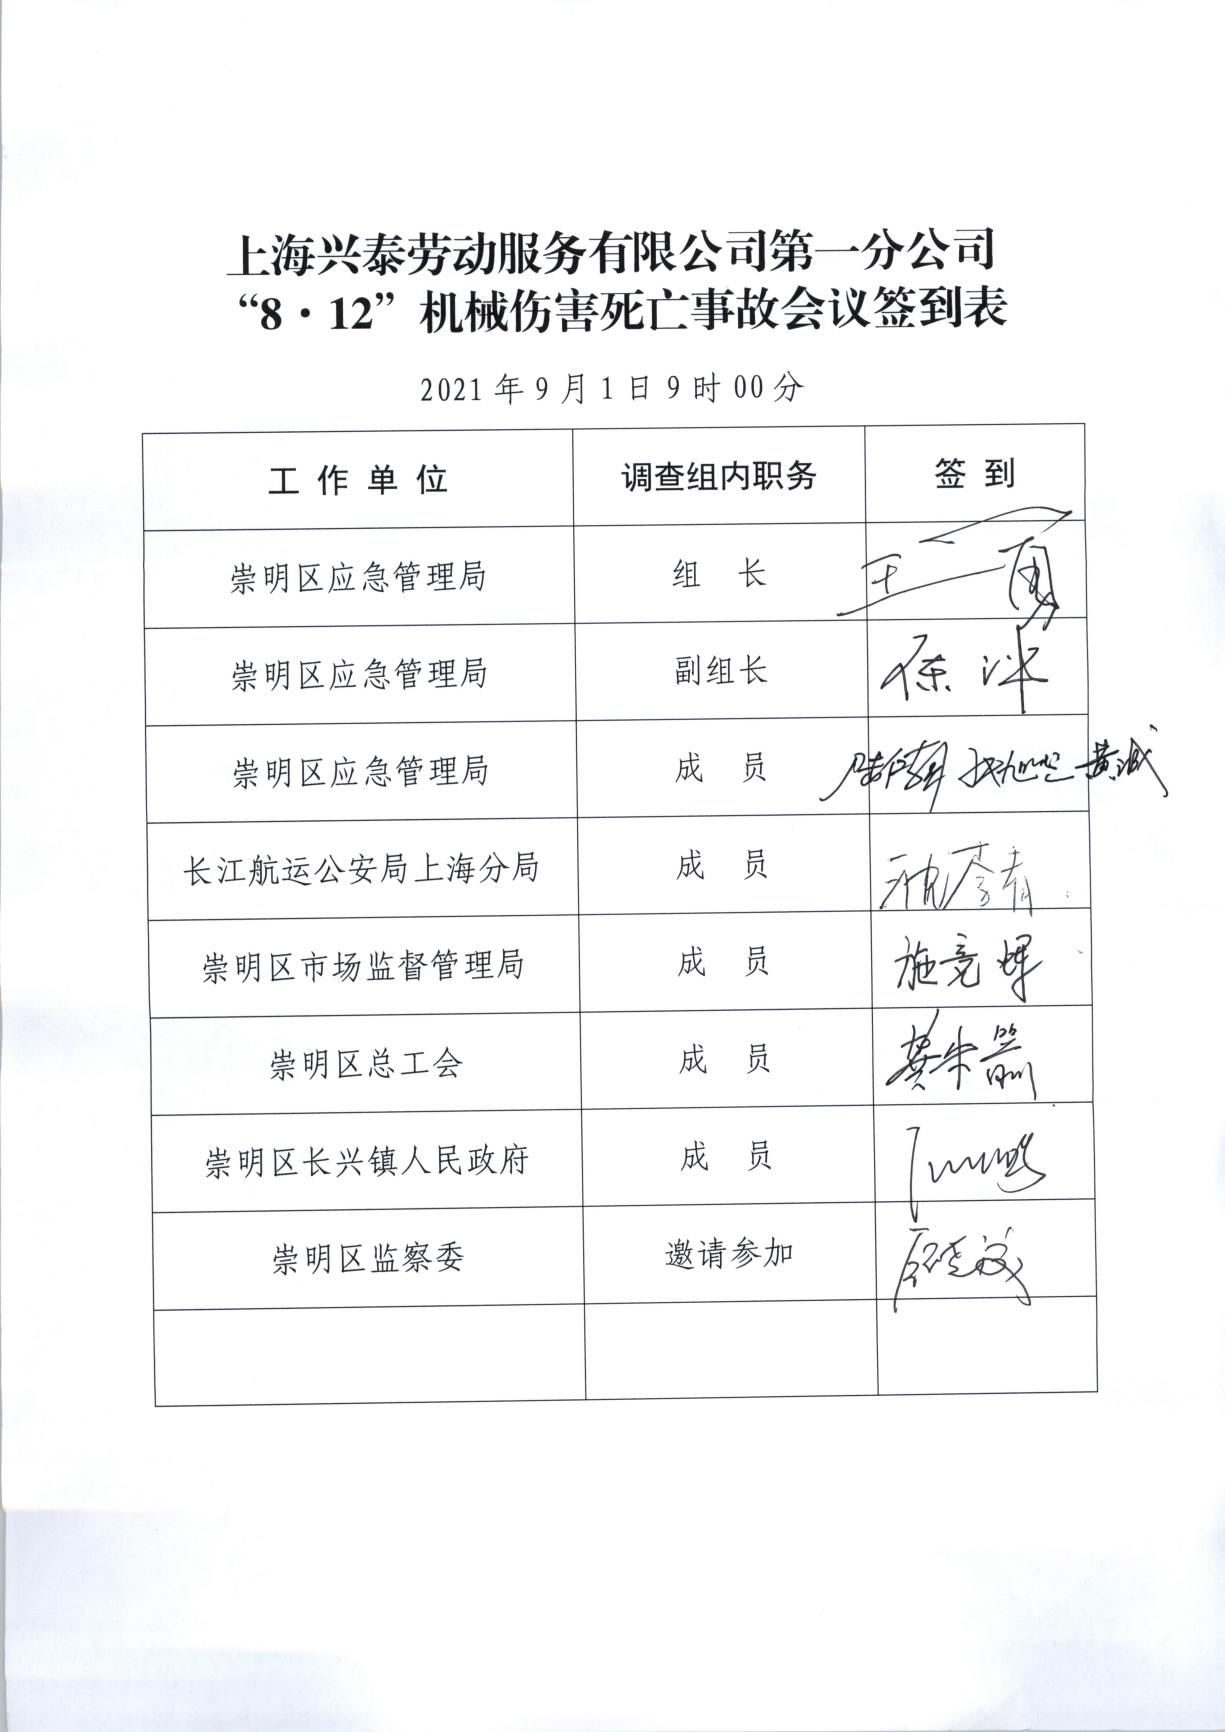 上海兴泰劳动服务有限公司第一分公司
“8·12”机械伤害死亡事故会议签到表
2021年9月1日9时00分
工作单位 调查组内职务 签到
崇明区应急管理局 组 长 王 勇
崇明区应急管理局 副组长
崇明区应急管理局 成 员 黄诚
长江航运公安局上海分局 成 员
崇明区市场监督管理局 成 员 施竞辉
崇明区总工会 成 员 龚朱
崇明区长兴镇人民政府 成 员
崇明区监察委 邀请参加